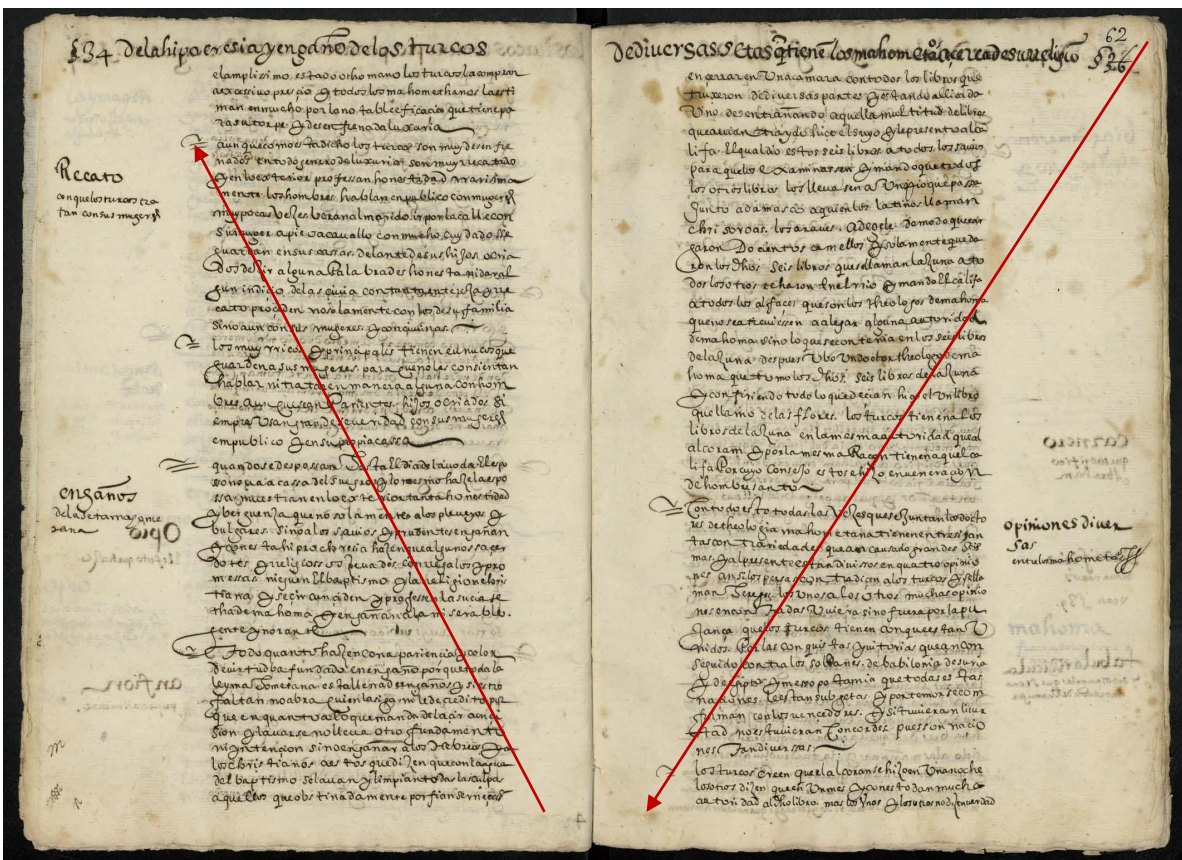 §34 De la hipocresia y engaño de los turcos
el amplisimo estado othomano los turcos la compran
a excesivo precio y todos los mahomethanos la esti
man en mucho por la notable eficacia que tiene pa
ra su torpe y desenfrenada luxuria
aunque como esta dicho los turcos son muy desenfre
nados en todo genero de luxuria son muy recatados
y en lo exterior professan honestidad y rarisima
mente los hombres hablan en publico con mugeres
muy pocas vezes veran al marido ir por la calle con
su muger a pie o a cavallo con mucho cuydado se
guardan en sus cassas delante de sus hijos o cria
dos dezir alguna palabra deshonesta ni dar al
gun indicio de lascivia con tanta entereza y re
cato proceden no solamente con los de su familia
sino aun con sus mugeres y concuvinas
Recato
con que los turcos tra
tan con sus mugeres
los muy ricos y principales tienen eunucos que
guarden a sus mugeres para que no les consientan
hablar ni tratar en manera alguna con hom
bres aunque sean parientes hijos o criados si
empre usan grande severidad con sus mugeres
en publico y en su propia cassa
quando se despossan hasta el dia de la voda el espo
so no va a cassa del suegro y lo mesmo haze la espo
ssa muestran en lo exterior tanta honestidad
y berguenza que no solamente a los plebeyos y
bulgares sino a los savios y prudentes engañan
y con esta hipochresia hazen que algunos sacer
dotes y religiosos
messas nieguen el baptismo y la religion chris
tiana y se circunciden y professen la sucia se
tha de mahoma y engañan a la miserable
gente ygnorante
engaños
de la seta mahome
tana
Todo quanto hazen con apariencia y color
de virtud ba fundado en engaño por que toda la
ley mahometana esta llena de engaños y si esto
faltan no abra quien las siga ni le de credito por
que en quanto a lo que manda de la circuncis
sion y lavarse no lleva otro fundamento
ni yntencion sino engañar a los hebreos y a
los christianos a estos que dizen que con la agua
del baptismo se lavan y limpian todas las culpas
a aquellos que obstinadamente porfian ser neces
De diversas setas q tiene los mahometanos acerca de su religio §36
62
encerrar en una camara con todos los libros que
truxeron de diversas partes y estando alli cada
uno de entrando aquella multitud de libros
que avian traydo hico el suyo y le presento al ca
lifa El qual dio estos seis libros a todos los savios
para que los examinassen y mando que todos
los otros libros los llevasen a un rio que passa
junto a damasco a quien los latinos llaman
chrisoroas los araves adegele de modo que car
garon docientos camellos y solamente queda
ron los dhos seis libros que llaman la zuna a to
dos los otros echaron en el rio y mando el califa
a todos los alfaces que son los theologos de mahoma
que no se atreviessen a alegar alguna autoridad
de mahoma sino lo que se contenia en los seis libros
de la zuna despues ubo un doctor theologo de ma
homa que tomo los dhos seis libros de la zuna
y confiriendo todo lo que decian hizo el un libro
que llamo de las flores los turcos tienen a los
libros de la zuna en la mesma autoridad que al
alcoran y por la mesma racon tienen a aquel ca
lifa por cuyo consejo esto se hizo en veneracion
de hombre santo
Con todo esto todas las vezes que se juntan los docto
res de theologia mahometana tienen entre si tan
tas contrariedades que an causado grandes scis
mas y al presente estan divisos en quatro opinio
nes ansi los persas contradicen a los turcos y se lla
man herejes los unos a los otros muchas opinio
nes encontradas uviera sino fuera por la pu
janca que los turcos tienen con que estan u
nidos por las conquistas y vitorias que an con
seguido contra los soldanes de babilonia de suria
y de egipto y mesopotamia que todas estas
naciones le estan subgetas y por temor se con
firman con los vencedores y si tuvieran liber
tad no estuvieran concordes pues son nacio
nes tan diversas
opiniones diver
sas
entre los mahometas
los turcos creen que el alcoran se hizo en una noche
los otros dizen que en un mes y con esto dan mucha
autoridad al dho libro mas los unos y los otros no dizen verdad